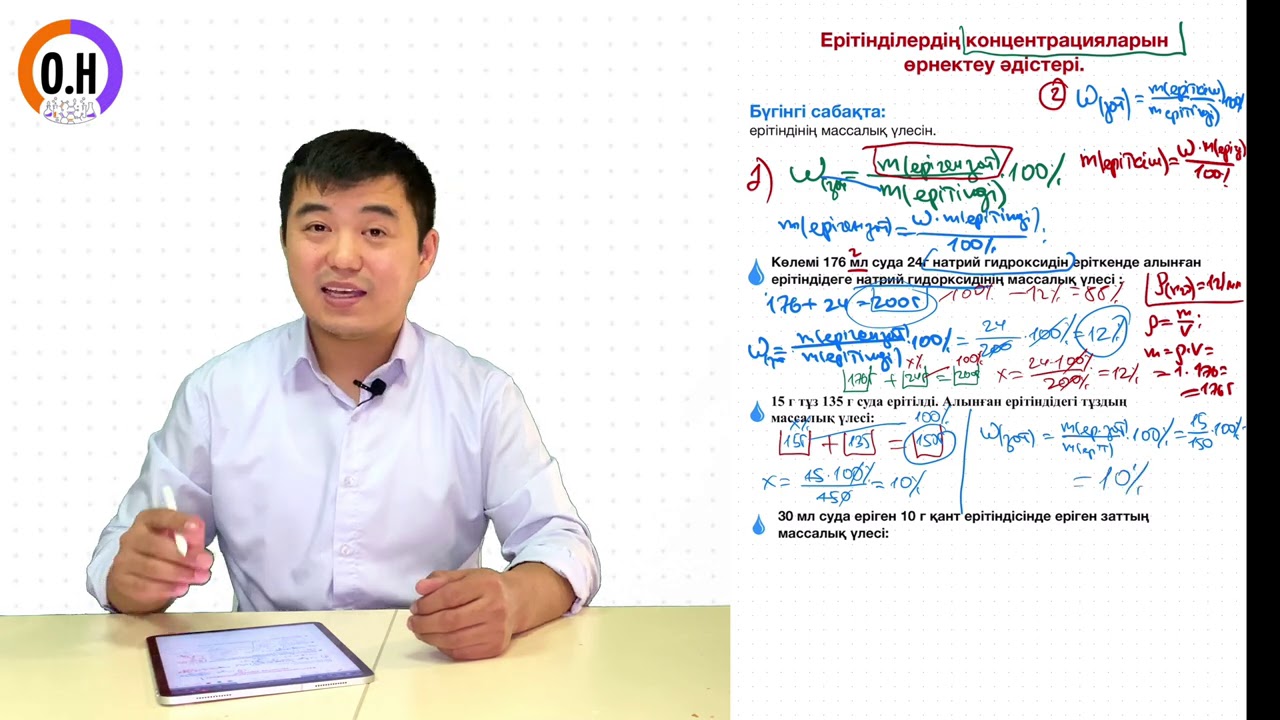 O.H
Ерітінділердің концентрацияларын
өрнектеу әдістері.
Бүгінгі сабақта:
ерітіндінің массалық үлесін.
2 W(зат) = m(еріткіш) / m(ерітінді) · 100%
1) W(зат) = m(еріген зат) / m(ерітінді) · 100%
m(еріткіш) =
100%
m(еріген зат) = W · m(ерітінді) / 100%
Көлемі 176 мл суда 24г натрий гидроксидін еріткенде алынған
ерітіндідеге натрий гидорксидінің массалық үлесі :
176 + 24 = 200г 100% - 12% = 88%
ρ = m/V;
m = ρ·V =
= 1 · 176 =
= 176г
m(еріген зат) / m(ерітінді) · 100% = 24/200 · 100% = 12%
x% 100%
176г + 24г = 200г x = = 12%
15 г тұз 135 г суда ерітілді. Алынған ерітіндідегі тұздың
массалық үлесі:
x% 100%
15г + 135 = 150г
x = = 10%
W(зат) = · 100% = 15/150 · 100%
= 10%
30 мл суда еріген 10 г қант ерітіндісінде еріген заттың
массалық үлесі: